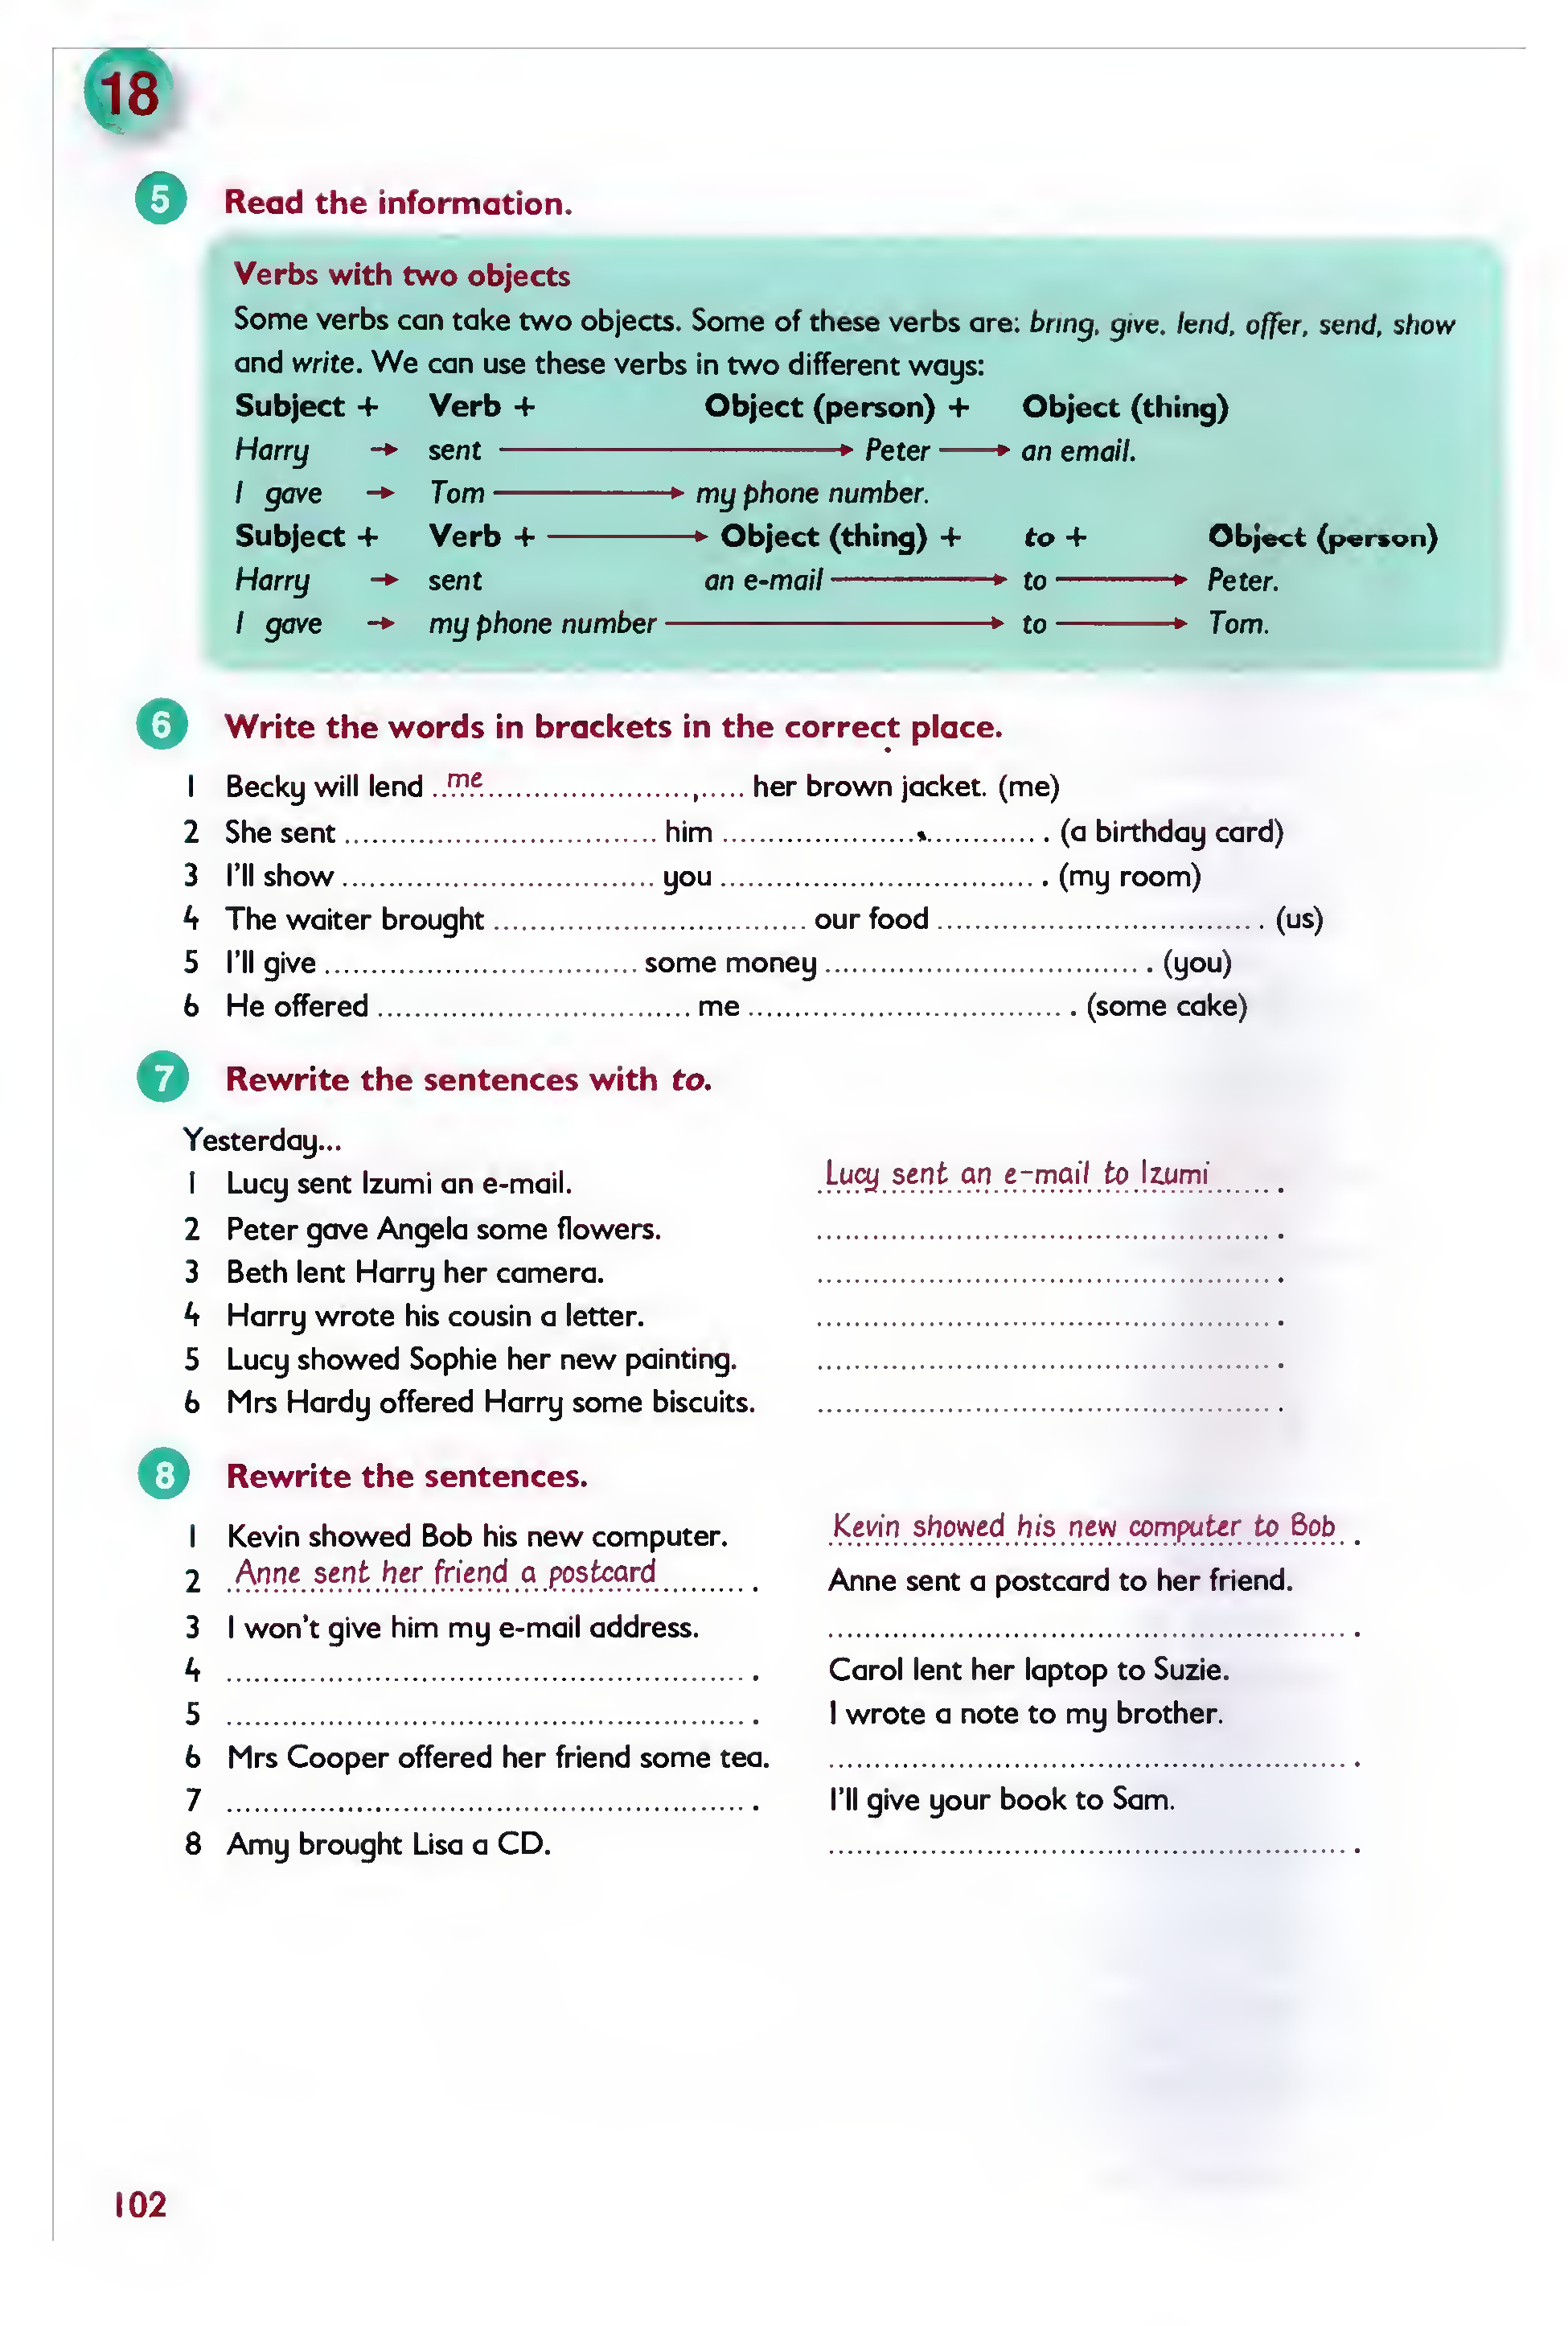 18
5 Read the information.
Verbs with two objects
Some verbs can take two objects. Some of these verbs are: bring, give, lend, offer, send, show
and write. We can use these verbs in two different ways:
Subject + Verb + Object (person) + Object (thing)
Harry → sent → Peter → an email.
I gave → Tom → my phone number.
Subject + Verb + → Object (thing) + to + Object (person)
Harry → sent an e-mail → to → Peter.
I gave → my phone number → to → Tom.
6 Write the words in brackets in the correct place.
1 Becky will lend ..me.............................. her brown jacket. (me)
2 She sent .................................. him .................................. . (a birthday card)
3 I'll show .................................. you .................................. . (my room)
4 The waiter brought .................................. our food .................................. . (us)
5 I'll give .................................. some money .................................. . (you)
6 He offered .................................. me .................................. . (some cake)
7 Rewrite the sentences with to.
Yesterday...
1 Lucy sent Izumi an e-mail. Lucy sent an e-mail to Izumi ....... .
2 Peter gave Angela some flowers. .................................................. .
3 Beth lent Harry her camera. .................................................. .
4 Harry wrote his cousin a letter. .................................................. .
5 Lucy showed Sophie her new painting. .................................................. .
6 Mrs Hardy offered Harry some biscuits. .................................................. .
8 Rewrite the sentences.
1 Kevin showed Bob his new computer. Kevin showed his new computer to Bob .
2 Anne sent her friend a postcard .......... . Anne sent a postcard to her friend.
3 I won't give him my e-mail address. .................................................. .
4 .................................................. . Carol lent her laptop to Suzie.
5 .................................................. . I wrote a note to my brother.
6 Mrs Cooper offered her friend some tea. .................................................. .
7 .................................................. . I'll give your book to Sam.
8 Amy brought Lisa a CD. .................................................. .
102